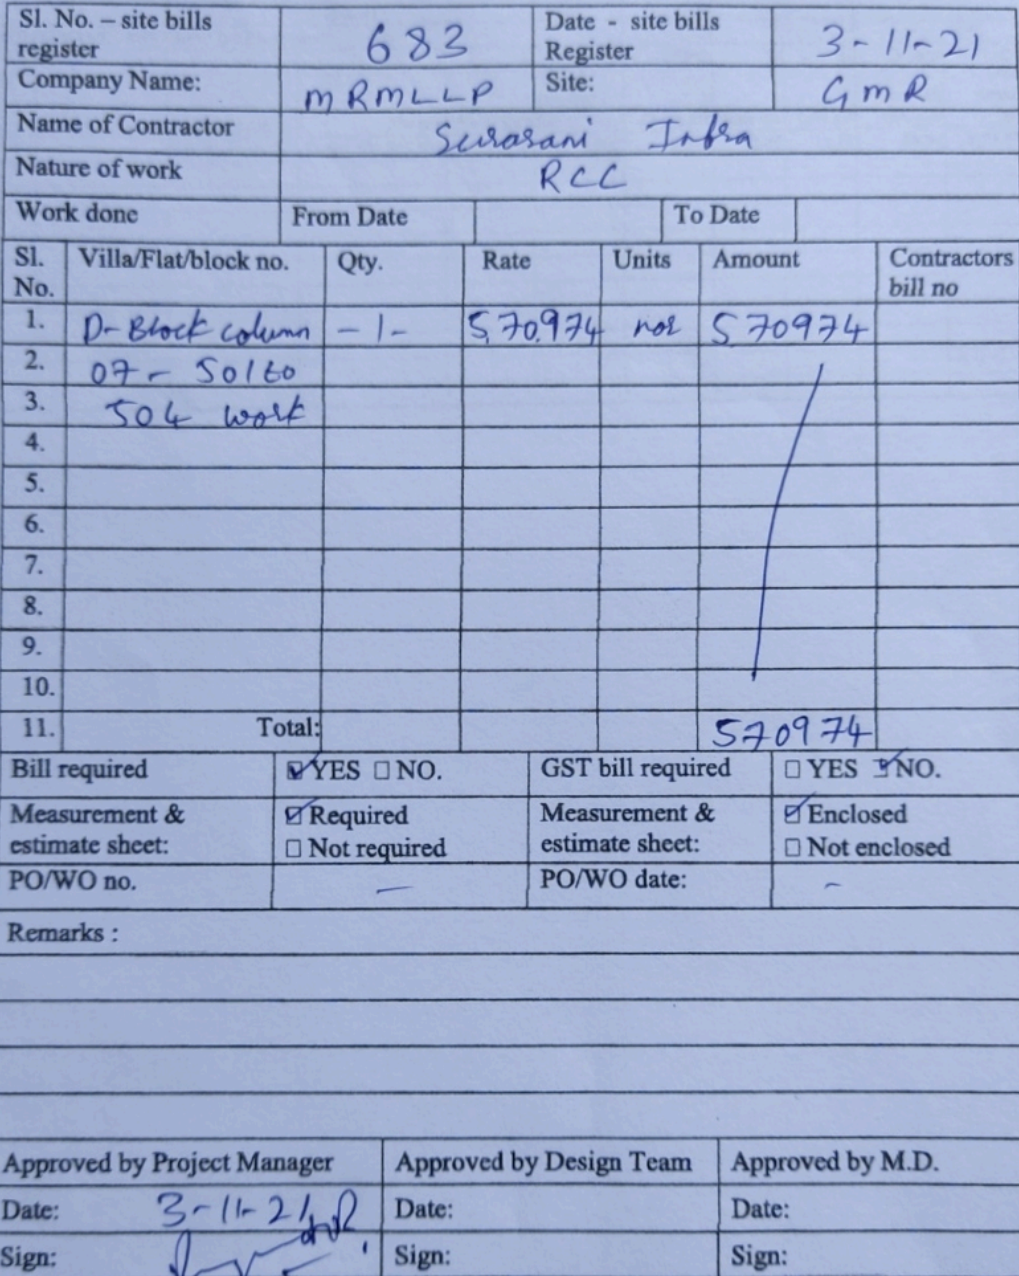 Sl. No. – site bills register 683 Date - site bills Register 3-11-21
Company Name: MRMLLP Site: GMR
Name of Contractor Surasani Infra
Nature of work RCC
Work done From Date To Date
Sl. No. Villa/Flat/block no. Qty. Rate Units Amount Contractors bill no
1. D-Block column -1- 5,70,974 nos 5,70974
2. 07 - 501 to
3. 504 work
4.
5.
6.
7.
8.
9.
10.
11. Total: 570974
Bill required ☑ YES ☐ NO. GST bill required ☐ YES ☑ NO.
Measurement & estimate sheet: ☑ Required ☐ Not required Measurement & estimate sheet: ☑ Enclosed ☐ Not enclosed
PO/WO no. – PO/WO date: –
Remarks :
Approved by Project Manager Approved by Design Team Approved by M.D.
Date: 3-11-21 Date: Date:
Sign: Sign: Sign: